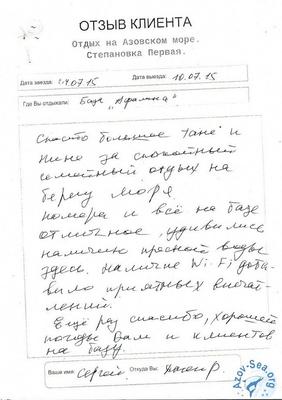 ОТЗЫВ КЛИЕНТА
Отдых на Азовском море.
Степановка Первая.
Дата заезда: 24.07.15 Дата выезда: 10.07.15
Где Вы отдыхали: База "Афалина"
Спасибо большое Тане и
Нине за спокойный
семейный отдых на
берегу моря.
номера и всё на базе
отличное, удивились
наличию пресной воды
здесь. Наличие Wi-Fi доба-
вило приятных впечат-
лений.
Ещё раз спасибо, хорошей
погоды Вам и клиентов
на базу.
Ваше имя: Сергей Откуда Вы:
Azov-Sea.org